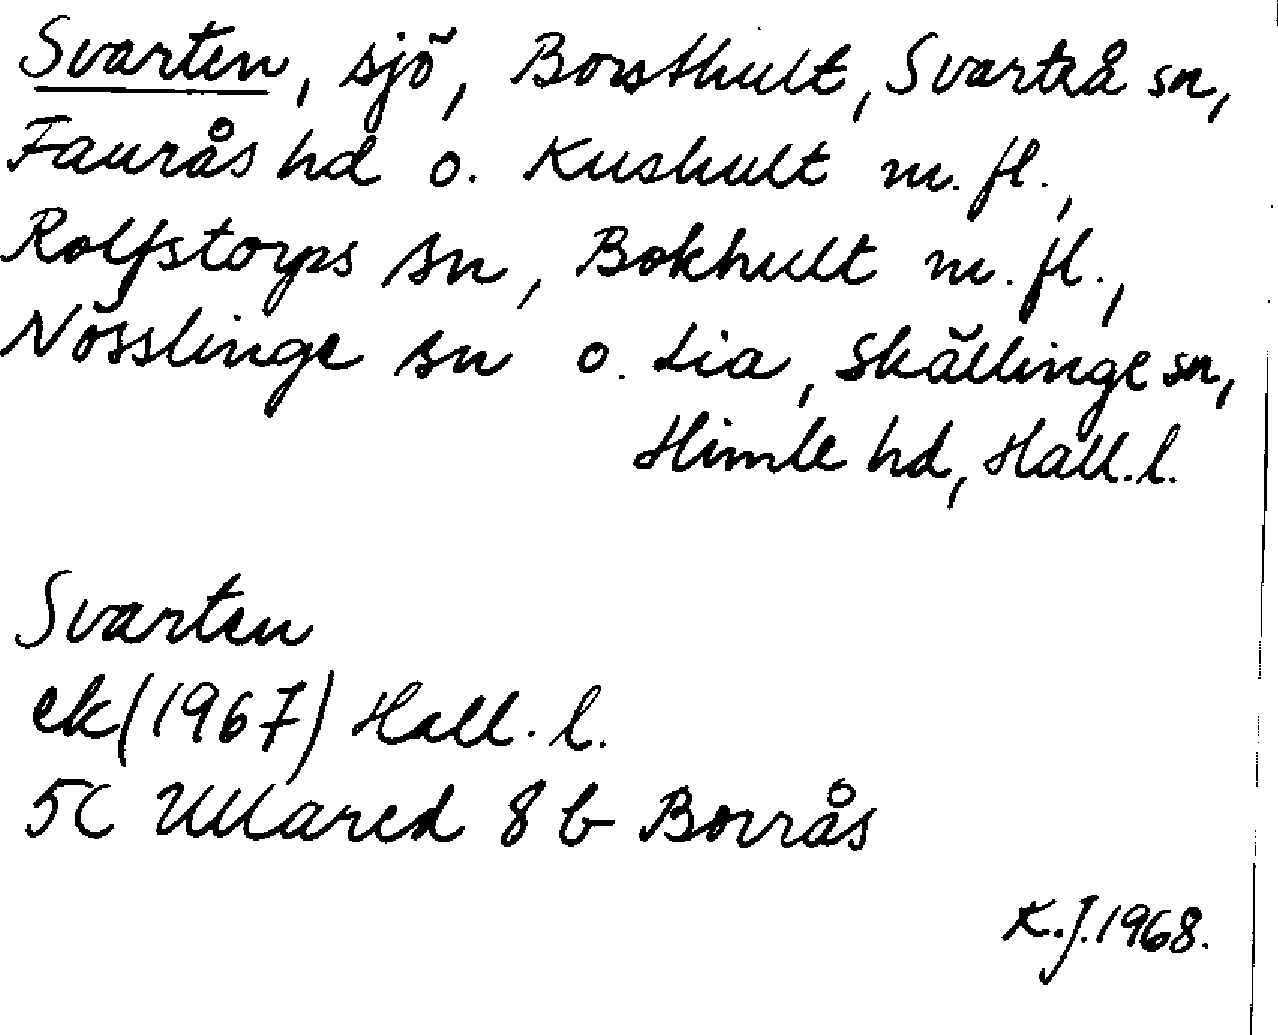 Svarten, sjö, Borsthult, Svartrå sn,
Faurås hd o. Kushult m. fl.,
Rolfstorps sn, Bokhult m. fl.,
Nösslinge sn o. Lia, Skällinge sn,
Himle hd, Hall. l.
Svarten
ek (1967) Hall. l.
5C Ullared 8 b Borrås
K.J. 1968.